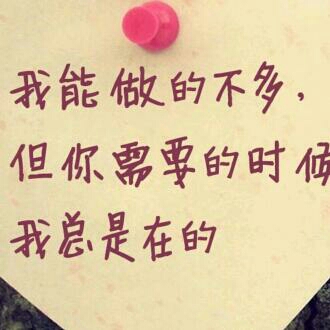 我能做的不多，
但你需要的时候
我总是在的